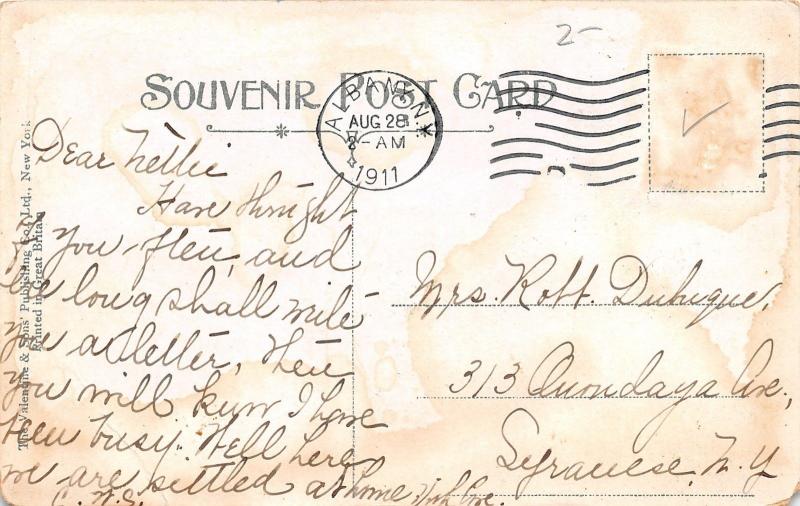 SOUVENIR POST CARD
ALBANY N.Y.
AUG 28
2-AM
1911
2-
The Valentine & Sons' Publishing Co., Ltd., New York
Printed in Great Britain
Dear Nellie
Have thought
of you often, and
ere long shall write
you a letter, then
you will know I have
been busy. Well here
we are settled at home
C. N. S.
Mrs. Robt. Dubuque,
313 Onondaga Ave,
Syracuse, N.Y